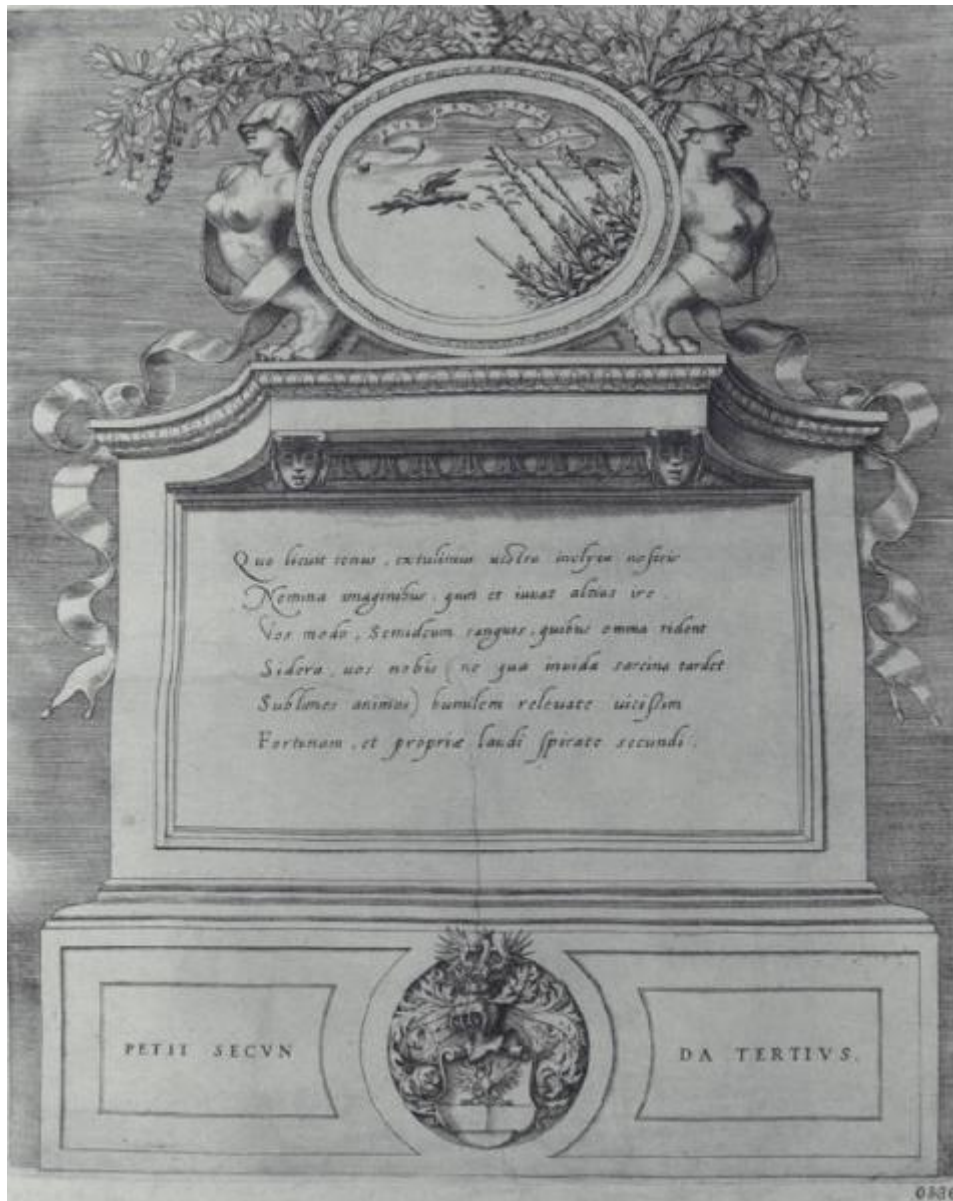 Quo licuit tenus, extulimus uestra inclyta nostris
Nomina imaginibus, quin et iuuat altius ire.
Vos modo, Semideum sanguis, quibus omnia rident
Sidera, uos nobis (ne qua inuida sarcina tardet
Sublimes animos) humilem releuate uicissim
Fortunam, et propriæ laudi spirate secundi.
PETII SECVN
DA TERTIVS.